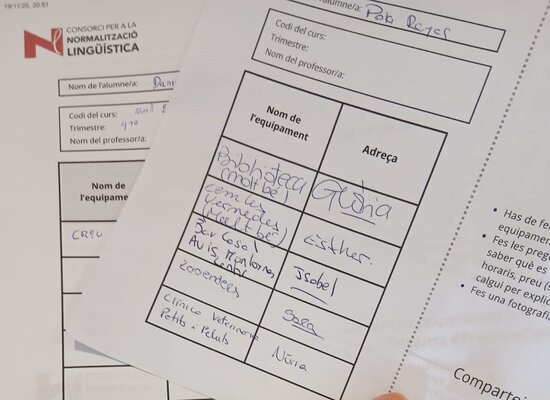 19/11/25, 20:51
CONSORCI PER A LA
NORMALITZACIÓ
LINGÜÍSTICA
Nom de l'alumne/a:
Codi del curs:
Trimestre: 4rt
Nom del professor/a:
Nom de
l'equipame
l'alumne/a: Pols Reyes
Codi del curs:
Trimestre:
Nom del professor/a:
Nom de
l'equipament
Adreça
Biblioteca
(Molt bé)
Glòria
cem les
Vernedes
(Molt bé)
Esther.
Ser Casal
Avis, Montornès
centre
Isabel
zooendels
Sara
Clínica Veterinària
Petits i Peluts
Núria
• Has de fe
equipamen
• Fes les preg
saber què es
horaris, preu (s
calgui per explic
• Fes una fotografia
Compartei